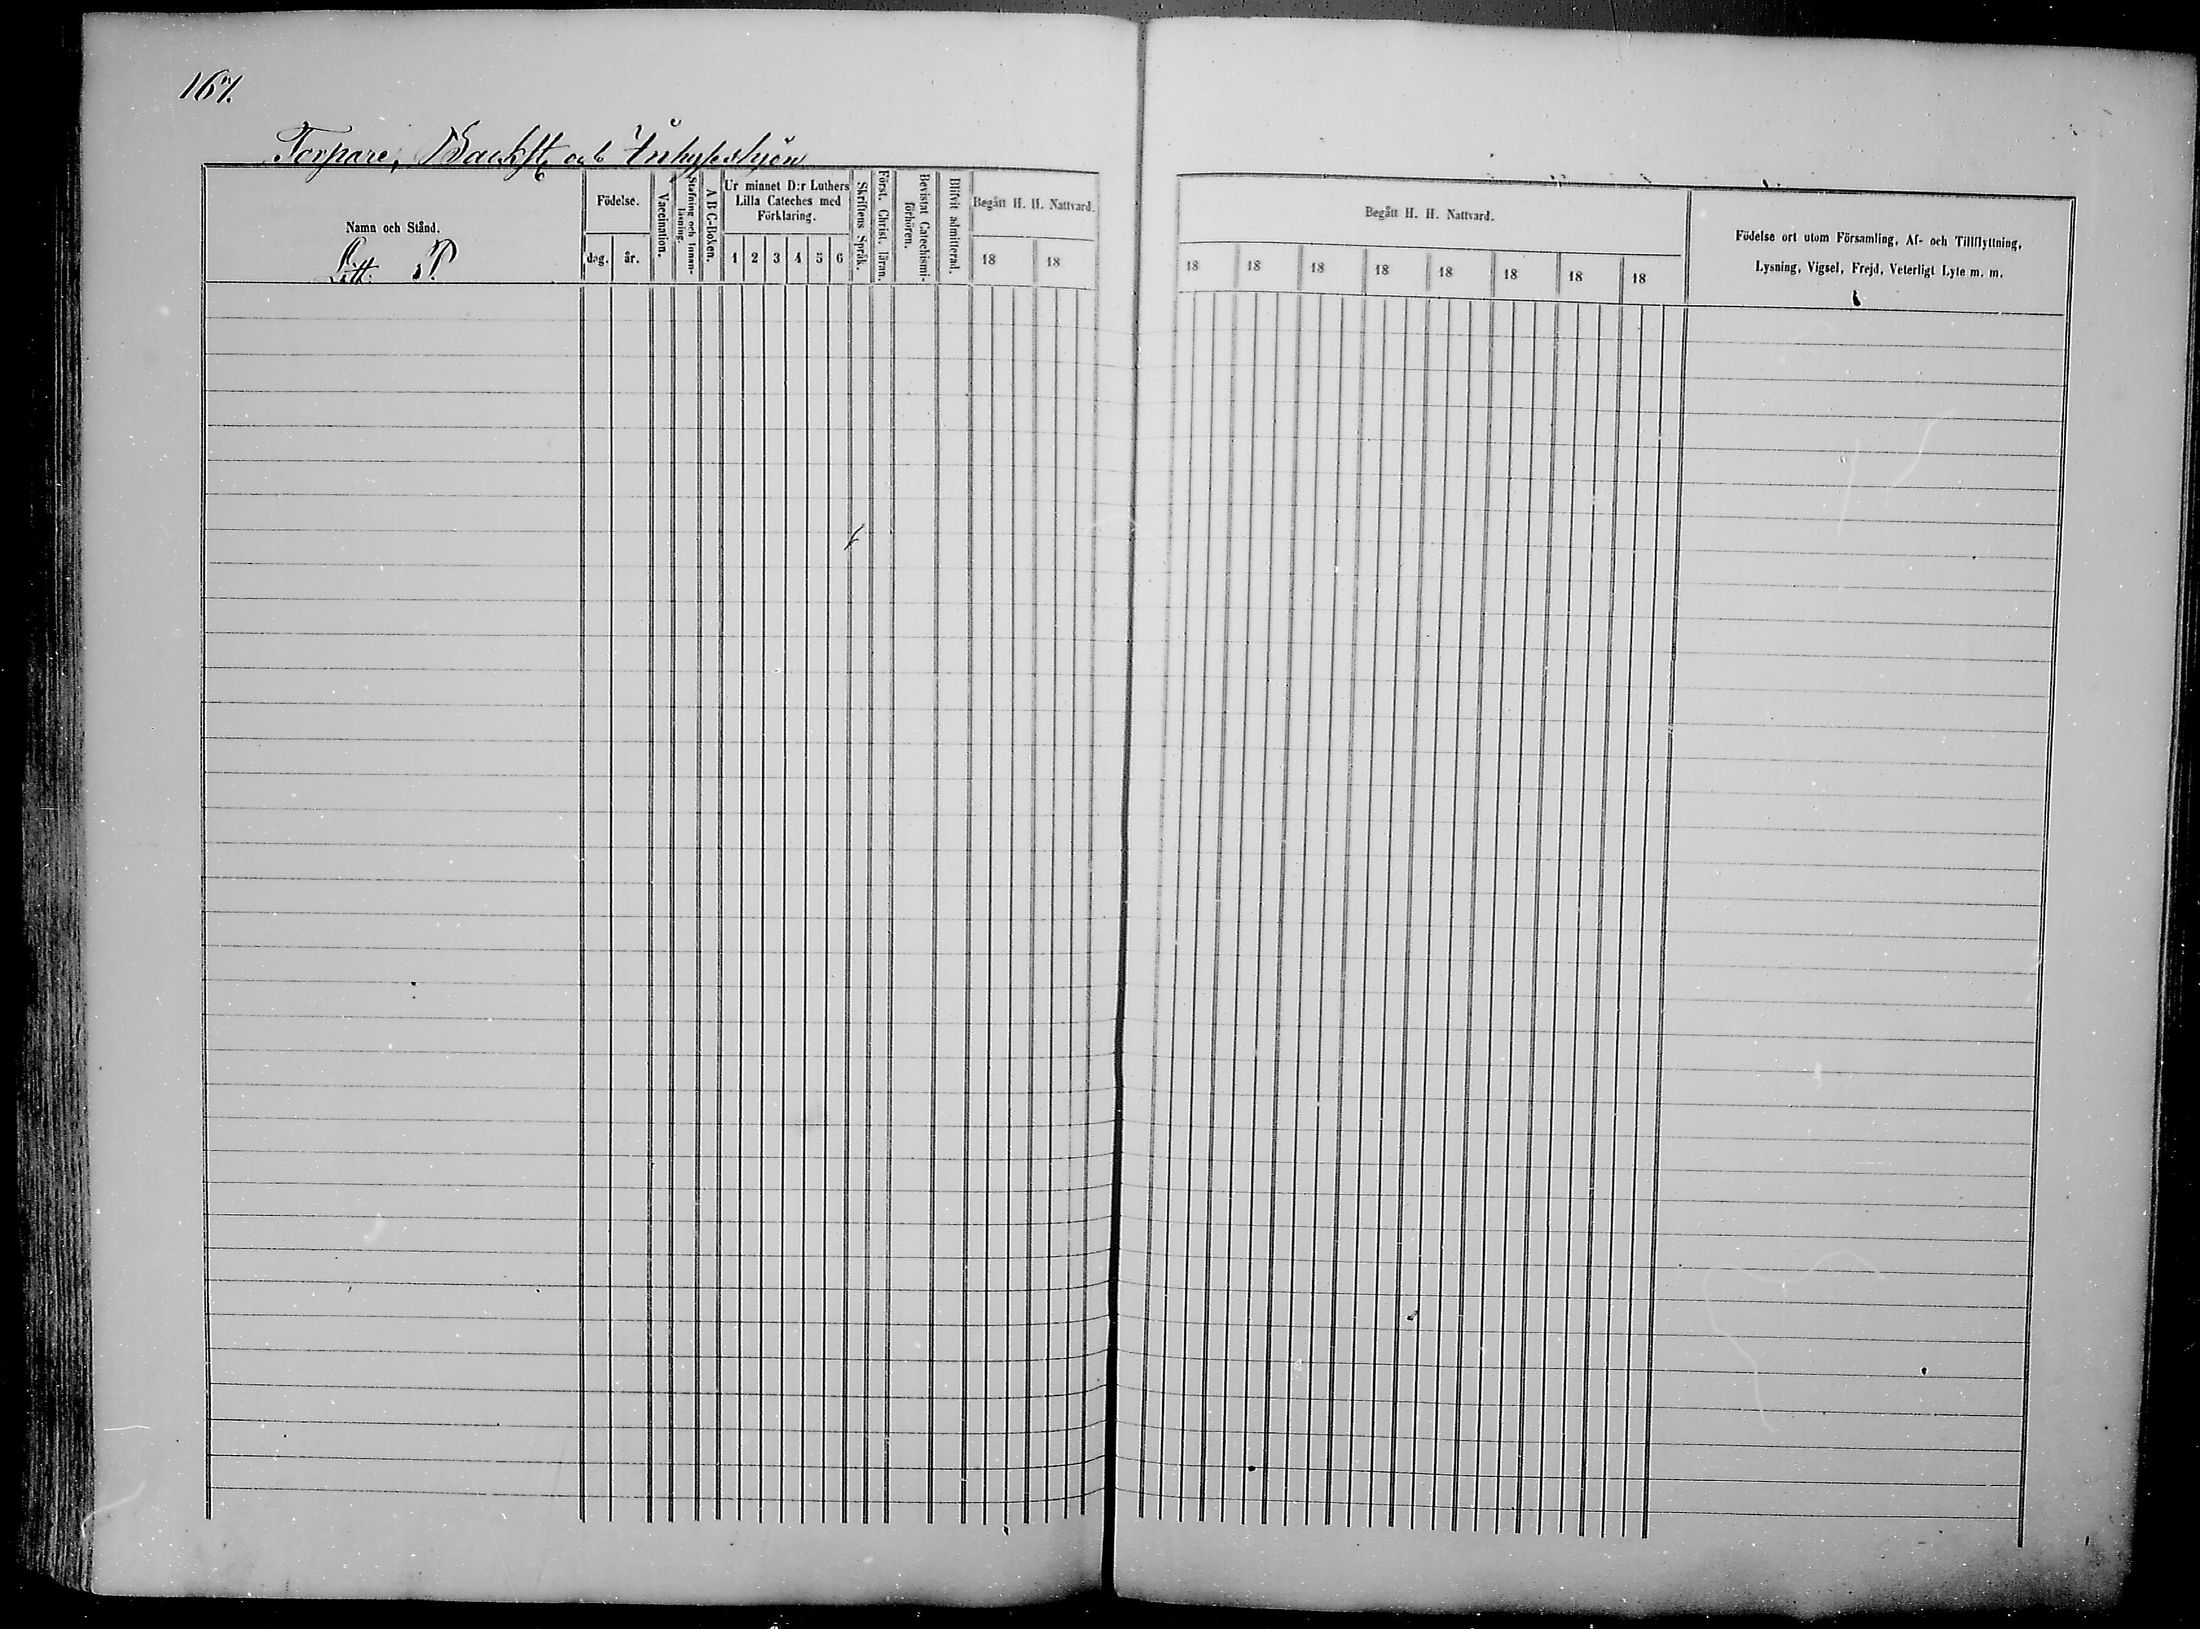 167.
Torpare, Backst. och Inhyseshjon
Namn och Stånd.
Litt. P.
Födelse.
dag. år.
Vaccination.
Stafning och Innan-
läsning.
A B C-Boken.
Ur minnet D:r Luthers
Lilla Cateches med
Förklaring.
1 2 3 4 5 6
Skriftens Språk.
Först. Christ. läran.
Bevistat Catechismi-
förhören.
Blifvit admitterad.
Begått H. H. Nattvard.
18 18
Begått H. H. Nattvard.
18 18 18 18 18 18 18 18
Födelse ort utom Församling, Af- och Tillflyttning,
Lysning, Vigsel, Frejd, Veterligt Lyte m. m.